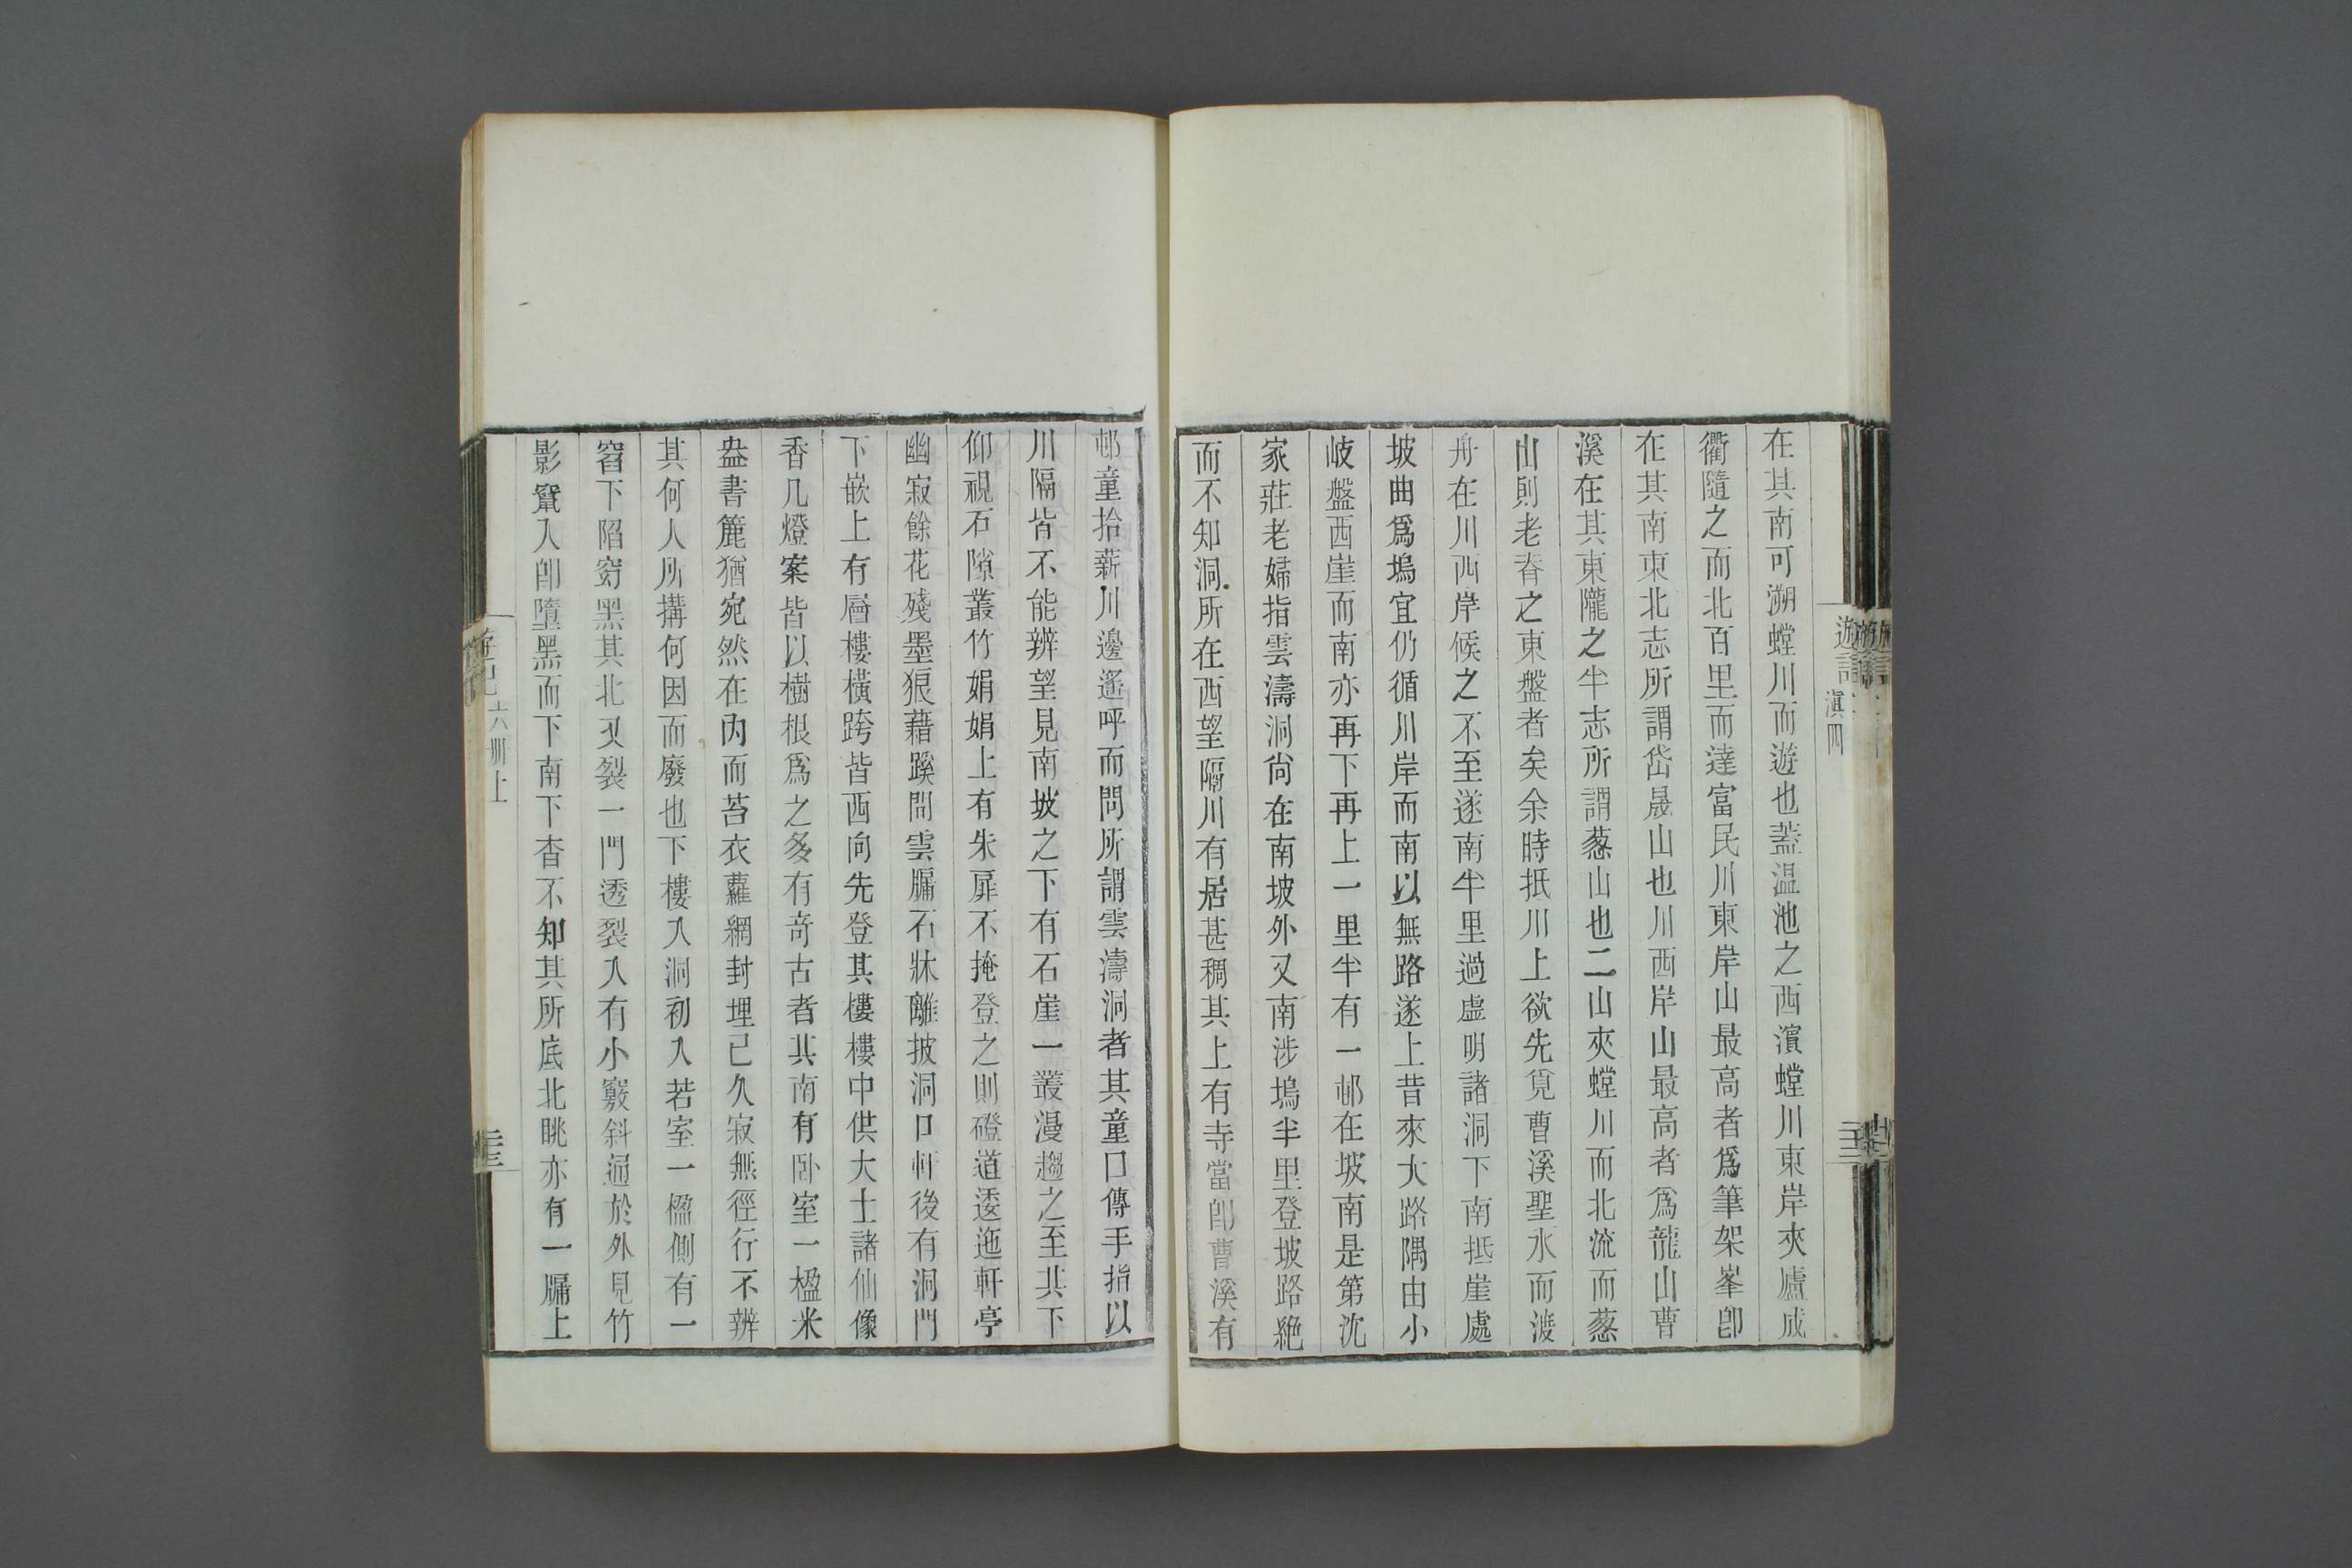 在其南可溯螳川而遊也蓋温池之西濱螳川東岸夾廬成
衢隨之而北百里而達富民川東岸山最高者爲筆架峯卽
在其南東北志所謂岱晟山也川西岸山最高者爲龍山曹
溪在其東隴之半志所謂葱山也二山夾螳川而北流而葱
山則老脊之東盤者矣余時抵川上欲先覓曹溪聖水而渡
舟在川西岸候之不至遂南半里過虛明諸洞下南抵崖處
坡曲爲塢宜仍循川岸而南以無路遂上昔來大路隅由小
岐盤西崖而南亦再下再上一里半有一邨在坡南是第沈
家莊老婦指雲濤洞尙在南坡外又南涉塢半里登坡路絶
而不知洞所在西望隔川有居甚稠其上有寺當卽曹溪有
邨童拾薪川邊遙呼而問所謂雲濤洞者其童口傳手指以
川隔皆不能辨望見南坡之下有石崖一叢漫趨之至其下
仰視石隙叢竹娟娟上有朱扉不掩登之則磴道逶迤軒亭
幽寂餘花殘墨狼藉蹊間雲牖石牀離披洞口軒後有洞門
下嵌上有層樓橫跨皆西向先登其樓樓中供大士諸仙像
香几燈案皆以樹根爲之多有奇古者其南有卧室一楹米
盎書簏猶宛然在內而苔衣蘿網封埋已久寂無徑行不辨
其何人所搆何因而廢也下樓入洞初入若室一楹側有一
窞下陷窈黑其北又裂一門透裂入有小竅斜通於外見竹
影竄入卽墮黑而下南下杳不知其所底北眺亦有一牖上
遊記
滇四
六册上